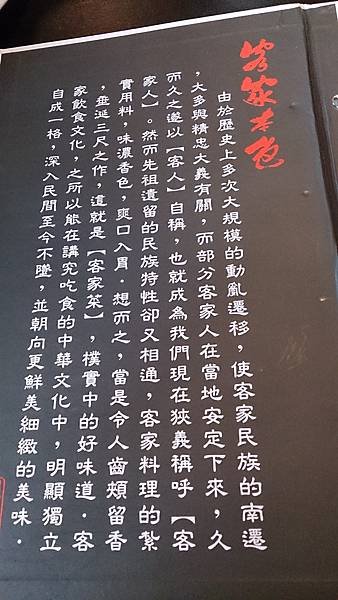 客家本色
由於歷史上多次大規模的動亂遷移，使客家民族的南遷
，大多與精忠大義有關，而部分客家人在當地安定下來，久
而久之遂以【客人】自稱，也就成為我們現在狹義稱呼【客
家人】。然而先祖遺留的民族特性卻又相通，客家料理的紮
實用料，味濃香色，爽口入胃．想而之，當是令人齒頰留香
，垂涎三尺之作，這就是【客家菜】，樸實中的好味道．客
家飲食文化，之所以能在講究吃食的中華文化中，明顯獨立
自成一格，深入民間至今不墜，並朝向更鮮美細緻的美味．